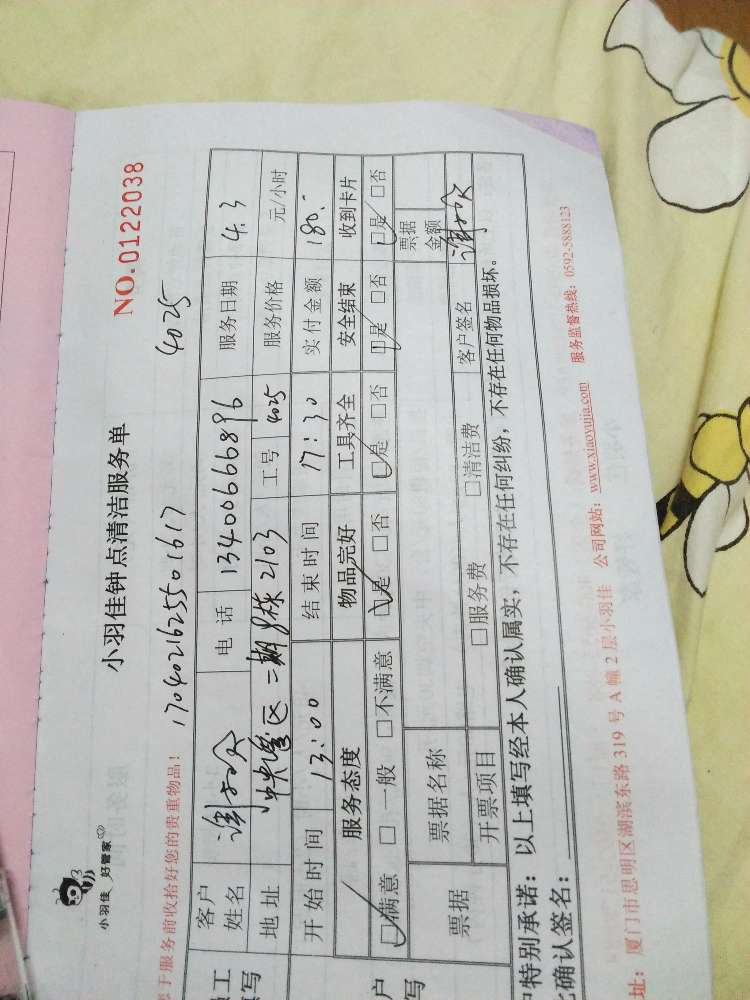 小羽佳 好管家
小羽佳钟点清洁服务单
NO.0122038
于服务前收拾好您的贵重物品! 1704021625501617 4025
客户姓名 电话 13400666896 服务日期 4.3
地址 二期8栋2103 工号 4025 服务价格 元/小时
开始时间 13:00 结束时间 17:30 实付金额 180.
服务态度 物品完好 工具齐全 安全结束 收到卡片
□满意 □一般 □不满意 □是 □否 □是 □否 □是 □否 □是 □否
票据 票据名称 □服务费 □清洁费 票据金额
开票项目 客户签名
特别承诺:以上填写经本人确认属实,不存在任何纠纷,不存在任何物品损坏。
确认签名:
址:厦门市思明区湖滨东路319号A幢2层小羽佳 公司网站:www.xiaoyujia.com 服务监督热线:0592-5888123